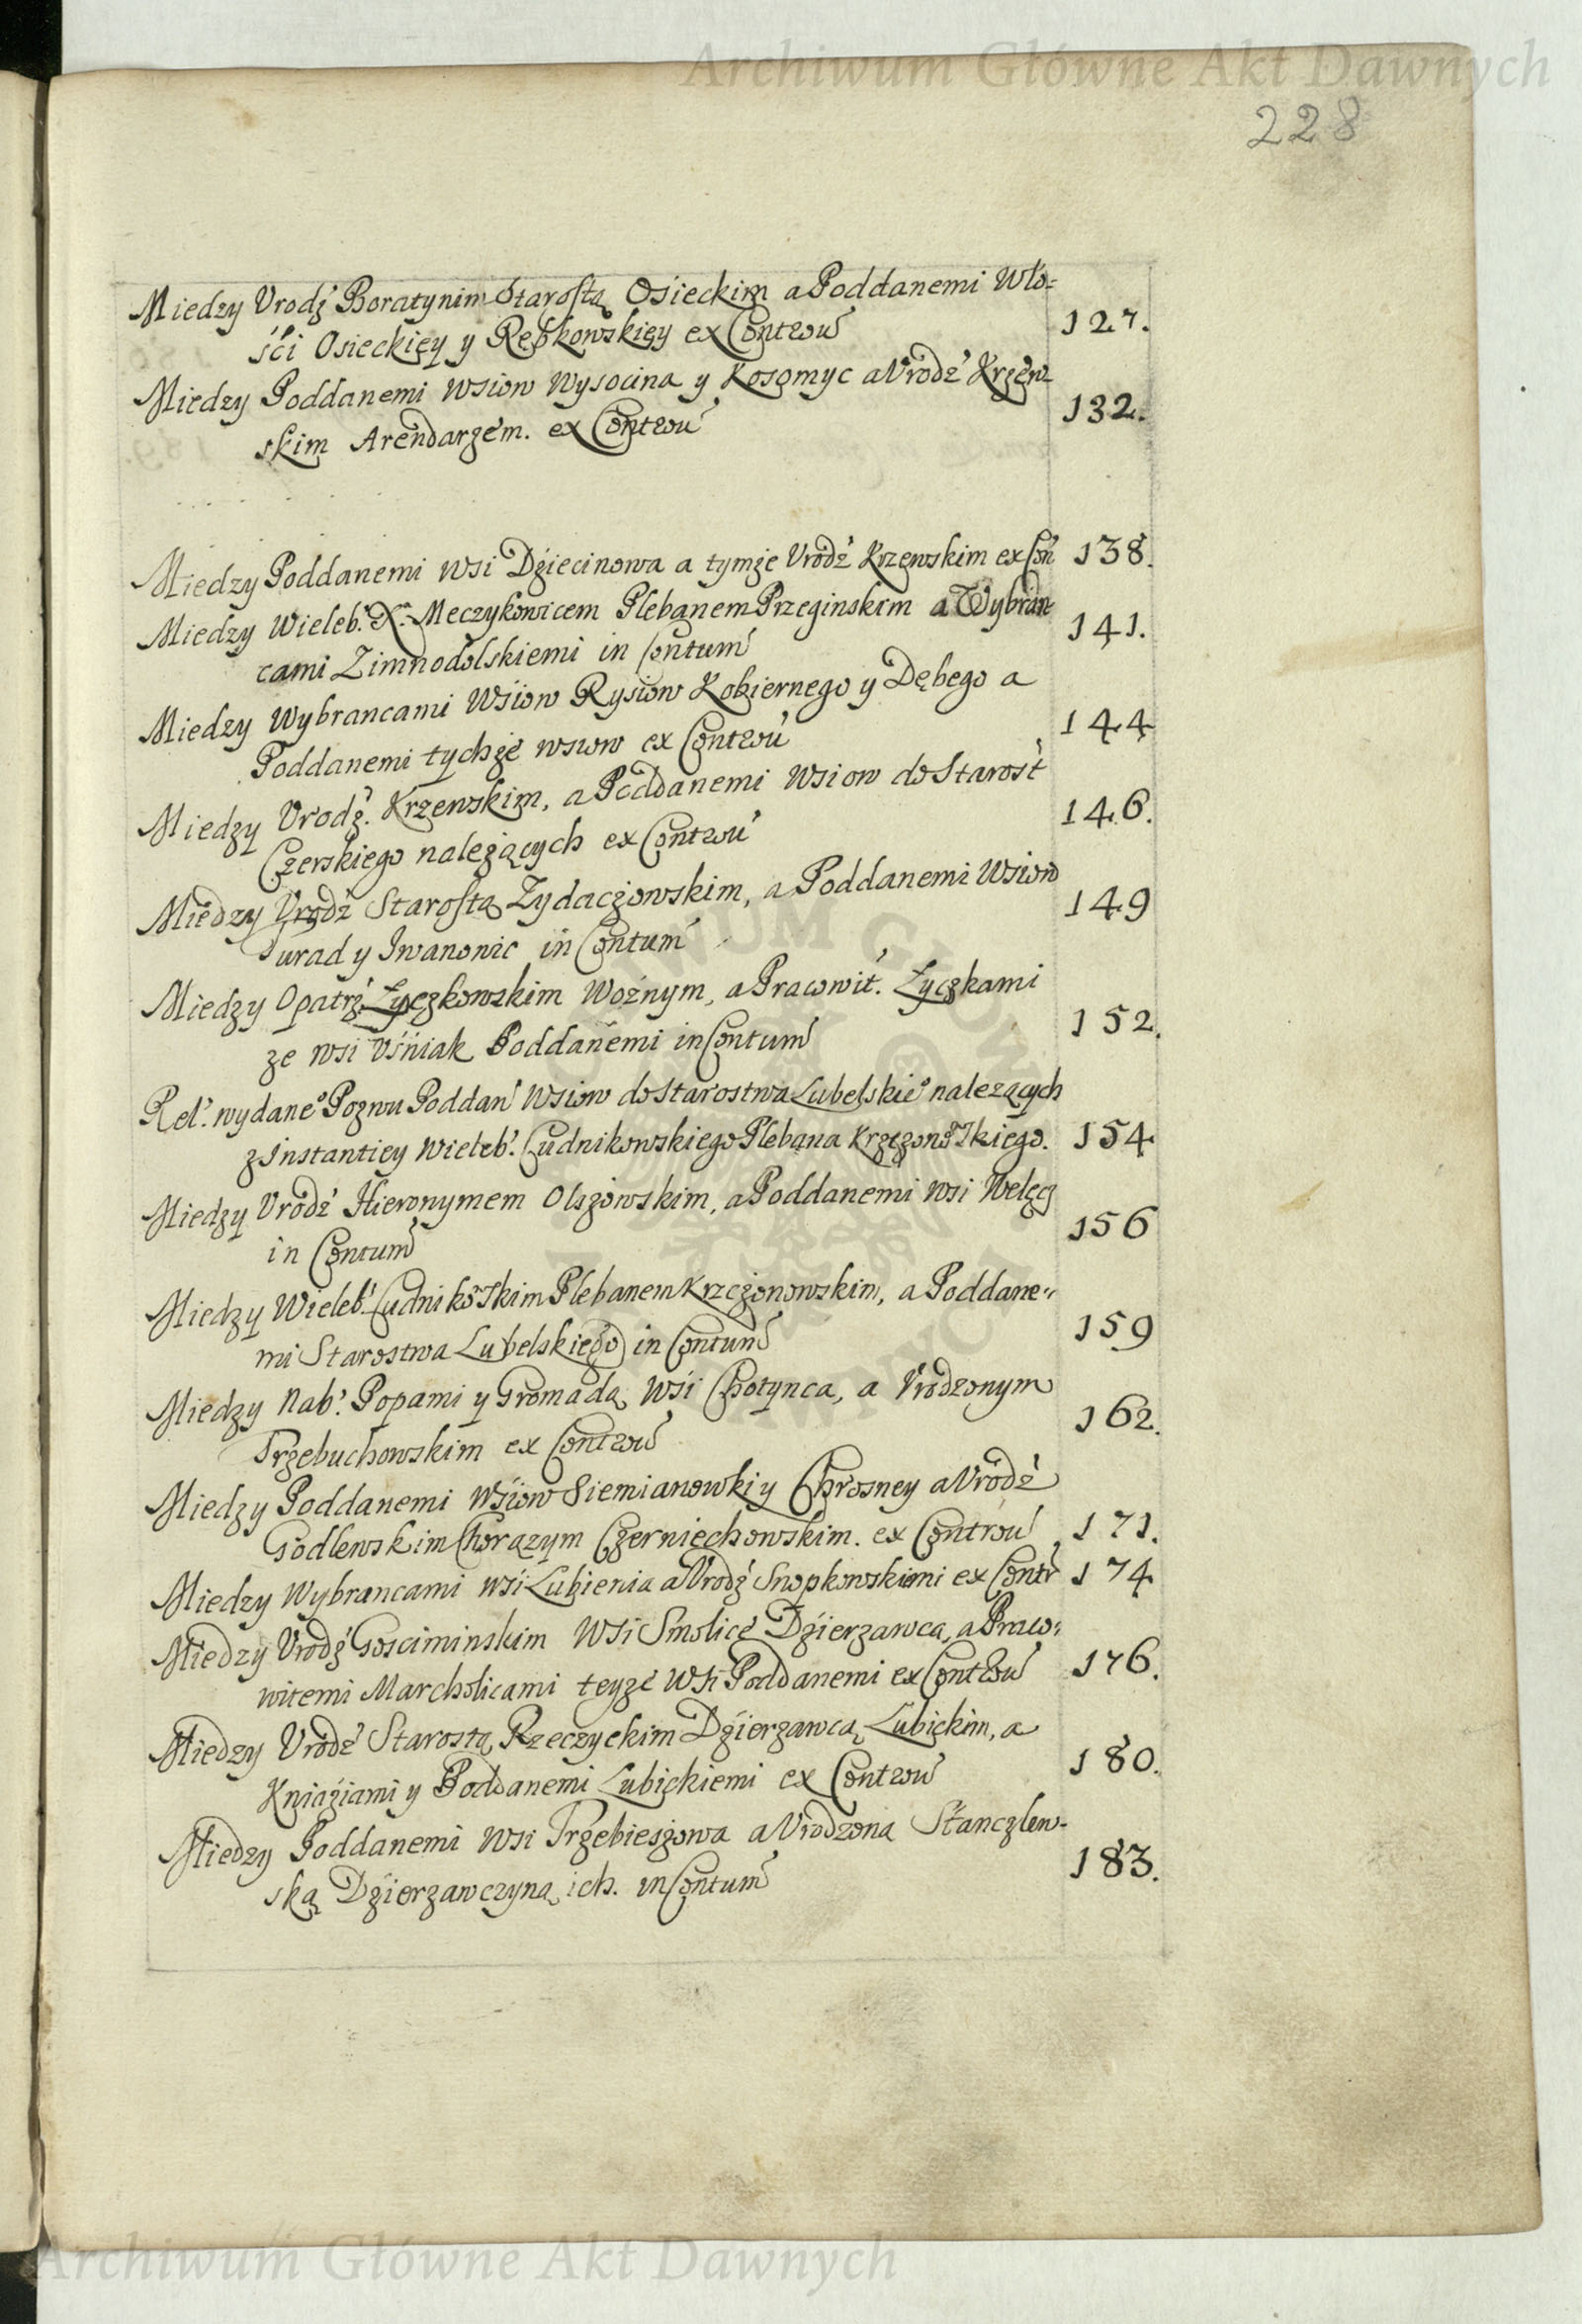 Archiwum Główne Akt Dawnych
228
Miedzy Vrodź Boratynim Starostą Osieckim a Poddanemi Wło=
ści Osieckiey y Rębkowskiey ex Controu 127.
Miedzy Poddanemi Wsiow Wysocina y Kosomyc a Vrodź Krzew
skim Arendarzem. ex Controu 132.
Miedzy Poddanemi Wsi Dziecinowa a tymże Vrodź Krzewskim ex Con 138.
Miedzy Wieleb. X. Meczykowicem Plebanem Przeginskim a Wybran
cami Zimnodolskiemi in Contum 141.
Miedzy Wybrancami Wsiow Rysiow Kobiernego y Dębego a
Poddanemi tychże wsiow ex Controu 144
Miedzy Vrodź. Krzewskim, a Poddanemi Wsiow do Starost
Czerskiego należących ex Controu 146.
Miedzy Vrodź Starostą Zydaczowskim, a Poddanemi Wsiow
Turad y Iwanowic in Contum 149
Miedzy Opatrz. Łyczkowskim Woźnym, a Pracowit. Łyczkami
ze wsi Vśniak Poddanemi in Contum 152.
Rel. wydane° Pozwu Poddan Wsiow do Starostwa Lubelskie° nalezących
z Instantiey Wieleb. Cudnikowskiego Plebana Krzczonowskiego. 154
Miedzy Vrodź Hieronymem Olszowskim, a Poddanemi Wsi Welęcz
in Contum 156
Miedzy Wieleb. Cudnikowskim Plebanem Krzczonowskim, a Poddane=
mi Starostwa Lubelskiego in Contum 159
Miedzy Nab. Popami y Gromadą Wsi Chotynca, a Vrodzonym
Trzebuchowskim ex Controu 162.
Miedzy Poddanemi Wsiow Siemianowki y Chrosney a Vrodź
Godlewskim Chorązym Czerniechowskim. ex Controu 171.
Miedzy Wybrancami wsi Lubienia a Vrodź Snopkowskiemi ex Contr 174
Miedzy Vrodź Gosciminskim Wsi Smolice Dzierzawca, a Praco=
witemi Marcholicami teyze Wsi Poddanemi ex Controu 176.
Miedzy Vrodź Starostą Rzeczyckim Dzierzawcą Lubickim, a
Kniaźiami y Poddanemi Lubickiemi ex Controu 180.
Miedzy Poddanemi Wsi Trzebieszowa a Vrodzona Stanczlew-
ską Dzierzawczyną ich. in Contum 183.
Archiwum Główne Akt Dawnych